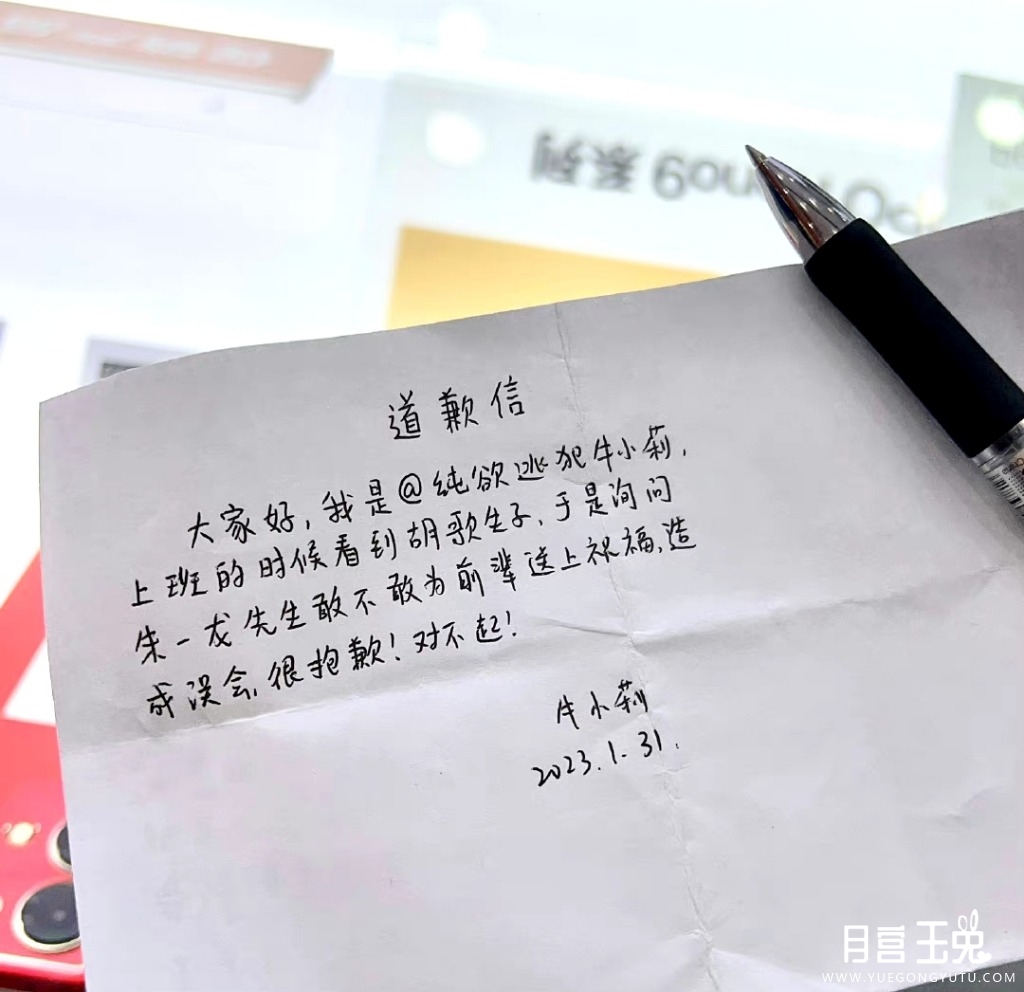 OPPO Reno9 系列
道歉信
大家好,我是@纯欲逃犯牛小莉,
上班的时候看到胡歌生子,于是询问
朱一龙先生敢不敢为前辈送上祝福,造
成误会,很抱歉!对不起!
牛小莉
2023.1.31.
月宫玉兔
WWW.YUEGONGYUTU.COM